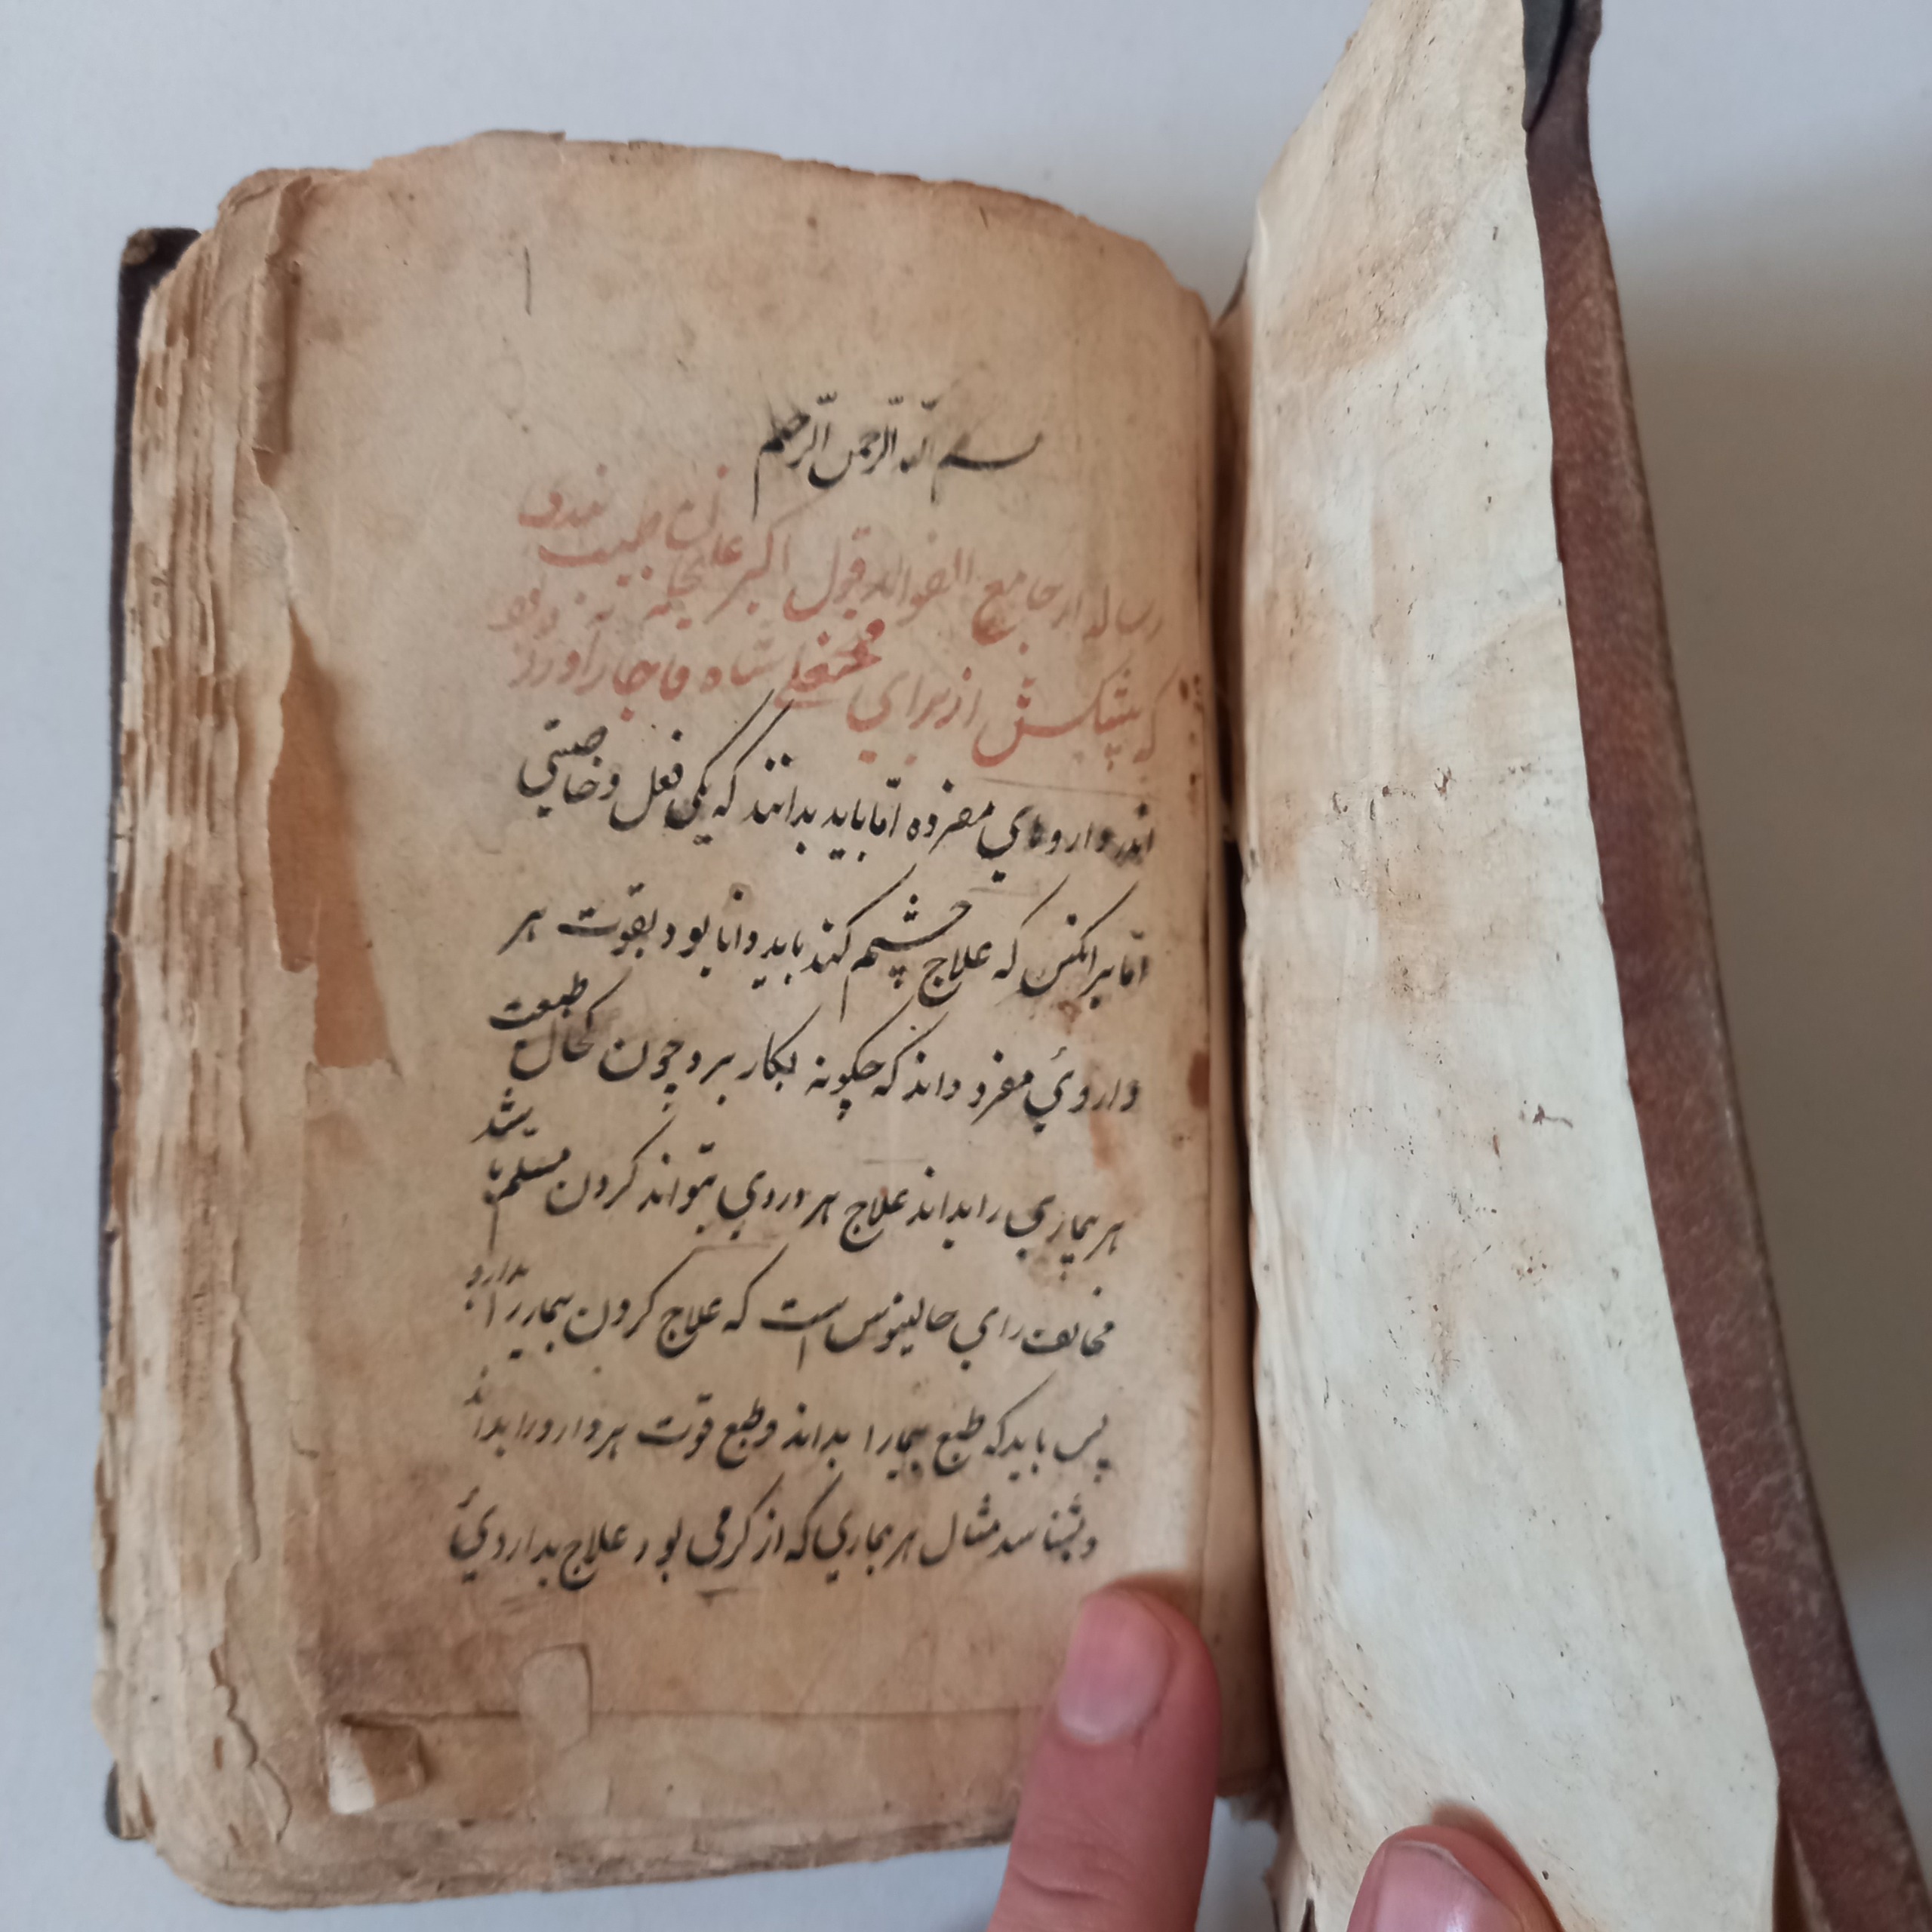 بسم الله الرحمن الرحیم
رساله از جامع الفوائد قول اکبر علیخان طبیب هندی
که پیشکش از برای فتحعلی شاه قاجار آورد
اندر داروهای مفرده اما باید بدانند که یکی فعل و خاصیتی
اما بر آنکس که علاج چشم کند باید دانا بود بقوت هر
داروئی مفرد داند که چگونه بکار برد چون کحال طبیعت
هر بیماری را بداند علاج هر دردی بتواند کردن مسلم باشد
مخالف رای جالینوس است که علاج کردن بیماررا بدارو
پس باید که طبع بیمار را بداند و طبع قوت هر دارو را بداند
و بشناسد مثال هر بیماری که از گرمی بود علاج بداروئی